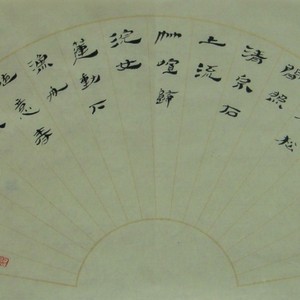 松
間照
清泉石
上流
竹喧歸
浣女
蓮動下
漁舟
隨意春